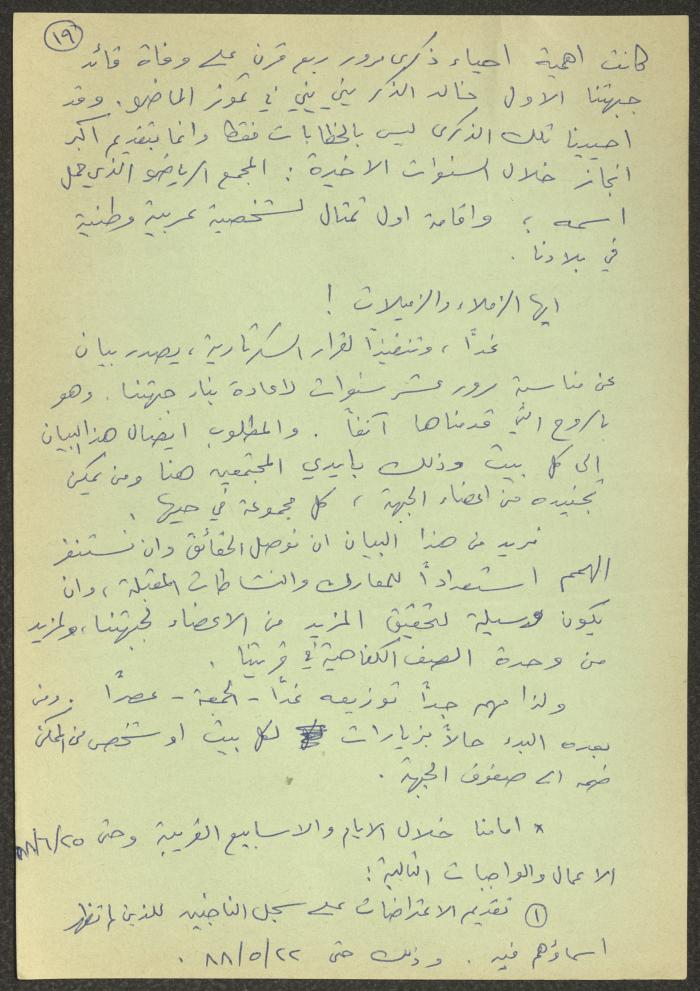 ١٩
كانت اهمية احياء ذكرى مرور ربع قرن على وفاة قائد
جبهتنا الاول خالد الذكر يني يني في تموز الماضي. وقد
احيينا تلك الذكرى ليس بالخطابات فقط وانما بتقديم اكبر
انجاز خلال السنوات الاخيرة : المجمع الرياضي الذي يحمل
اسمه ؛ واقامة اول تمثال لشخصية عربية وطنية
في بلادنا .
ايها الزملاء والزميلات !
غدًا ، وتنفيذًا لقرار السكرتارية ، يصدر بيان
عن مناسبة مرور عشر سنوات لاعادة بناء جبهتنا . وهو
بالروح التي قدمناها آنفًا . والمطلوب ايصال هذا البيان
الى كل بيت وذلك بايدي المجتمعين هنا ومن يمكن
تجنيده من اعضاء الجبهة ، كل مجموعة في حيها .
نريد من هذا البيان ان نوصل الحقائق وان نستنفر
الهمم استعدادًا للمعارك والنشاطات المقبلة ، وان
يكون وسيلة لتحقيق المزيد من الاعضاء لجبهتنا ، ولمزيد
من وحدة الصف الكفاحية في قريتنا .
ولذا مهم جدًا توزيعه غدًا - الجمعة - عصرًا . ومن
بعده البدء حالاً بزيارات لكل بيت او شخص من الممكن
ضمه الى صفوف الجبهة .
* امامنا خلال الايام والاسابيع القريبة وحتى ٨٨/٦/٢٥
الاعمال والواجبات التالية :
① تقديم الاعتراضات على سجل الناخبين للذين لم تظهر
اسماؤهم فيه . وذلك حتى ٨٨/٥/٢٢ .